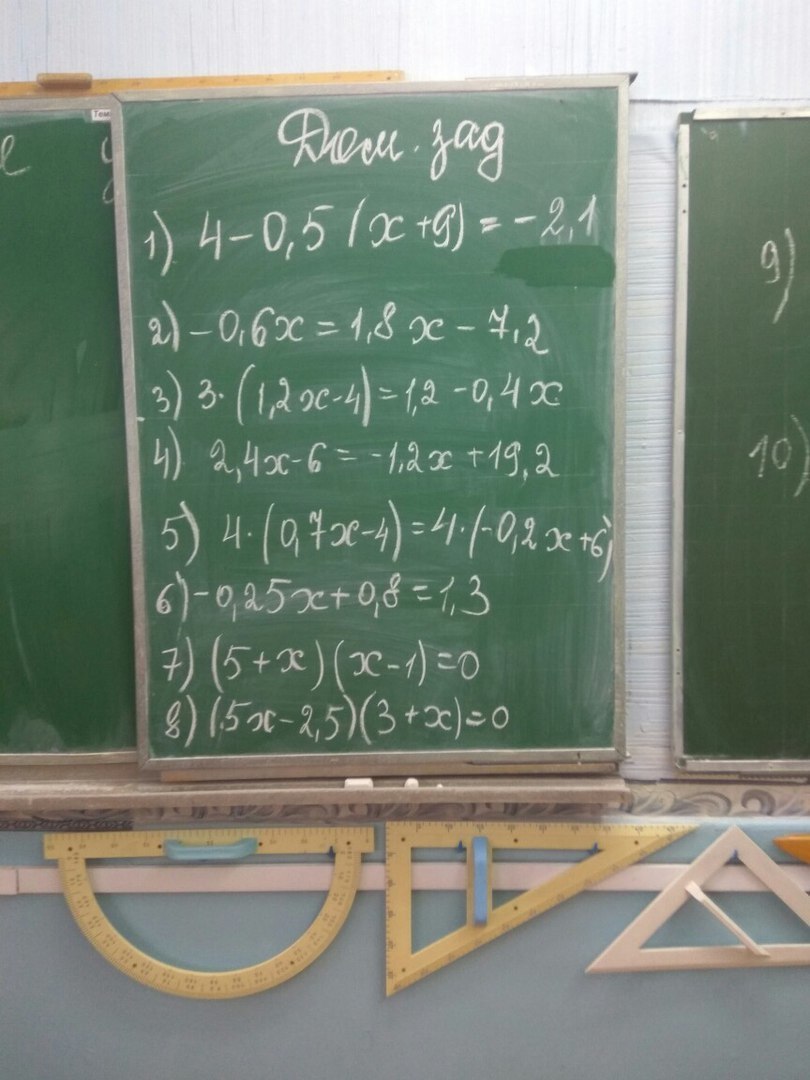 Дом. зад
1) 4-0,5(x+9)=-2,1
2) -0,6x=1,8x-7,2
3) 3·(1,2x-4)=1,2-0,4x
4) 2,4x-6=-1,2x+19,2
5) 4·(0,7x-4)=4·(-0,2x+6)
6) -0,25x+0,8=1,3
7) (5+x)(x-1)=0
8) (5x-2,5)(3+x)=0
9)
10)
Тем